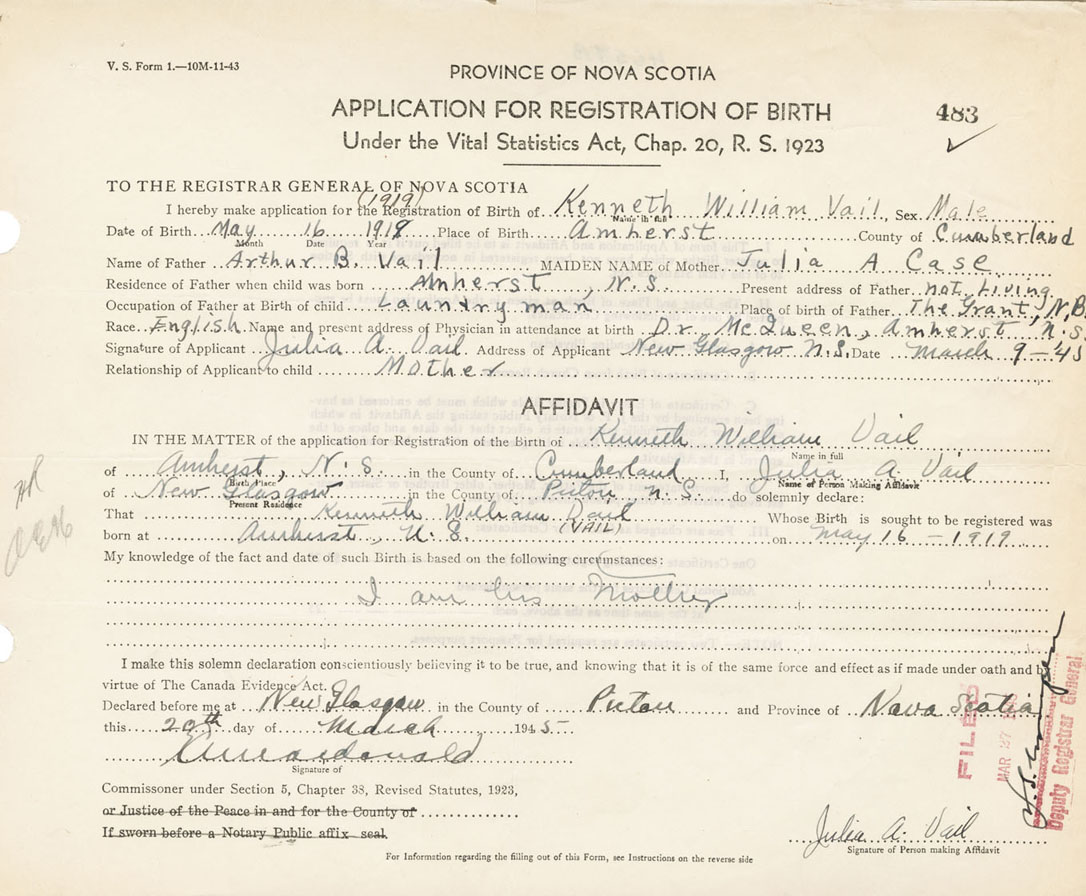 V. S. Form 1.—10M-11-43
PROVINCE OF NOVA SCOTIA
APPLICATION FOR REGISTRATION OF BIRTH 483
Under the Vital Statistics Act, Chap. 20, R. S. 1923
TO THE REGISTRAR GENERAL OF NOVA SCOTIA
(1919)
I hereby make application for the Registration of Birth of Kenneth William Vail, Sex Male
Name in full
Date of Birth May 16 1918 Place of Birth Amherst County of Cumberland
Month Date Year
Name of Father Arthur B. Vail MAIDEN NAME of Mother Julia A Case
Residence of Father when child was born Amherst, N.S. Present address of Father not Living
Occupation of Father at Birth of child Laundryman Place of birth of Father The Grant, N.B.
Race English Name and present address of Physician in attendance at birth Dr. McQueen, Amherst N.S.
Signature of Applicant Julia A. Vail Address of Applicant New Glasgow N.S. Date March 9-'45
Relationship of Applicant to child Mother
AFFIDAVIT
IN THE MATTER of the application for Registration of the Birth of Kenneth William Vail
Name in full
of Amherst, N.S. in the County of Cumberland I, Julia A. Vail
Birth Place Name of Person Making Affidavit
of New Glasgow in the County of Pictou N.S. do solemnly declare:
Present Residence
That Kenneth William Vail Whose Birth is sought to be registered was
(VAIL)
born at Amherst, N.S. on May 16 - 1919
My knowledge of the fact and date of such Birth is based on the following circumstances:
I am his Mother
I make this solemn declaration conscientiously believing it to be true, and knowing that it is of the same force and effect as if made under oath and by
virtue of The Canada Evidence Act.
Declared before me at New Glasgow in the County of Pictou and Province of Nova Scotia
this 20th day of March 1945
Signature of
Commissoner under Section 5, Chapter 38, Revised Statutes, 1923,
or Justice of the Peace in and for the County of
If sworn before a Notary Public affix seal.
Julia A. Vail
Signature of Person making Affidavit
For Information regarding the filling out of this Form, see Instructions on the reverse side
FILED
MAR 27
Deputy Registrar General